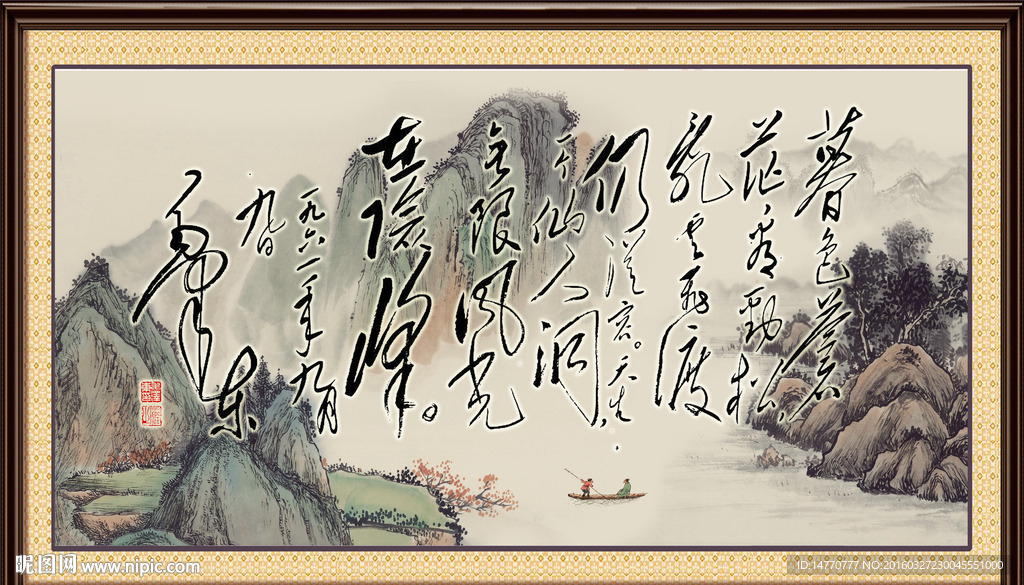 暮色蒼
茫看勁松,
亂雲飛渡
仍從容。天生
一个仙人洞
無限風光
在險峰。
一九六一年九月
九日
毛澤東
昵图网 www.nipic.com
ID:14770777 NO:20160327230045551000